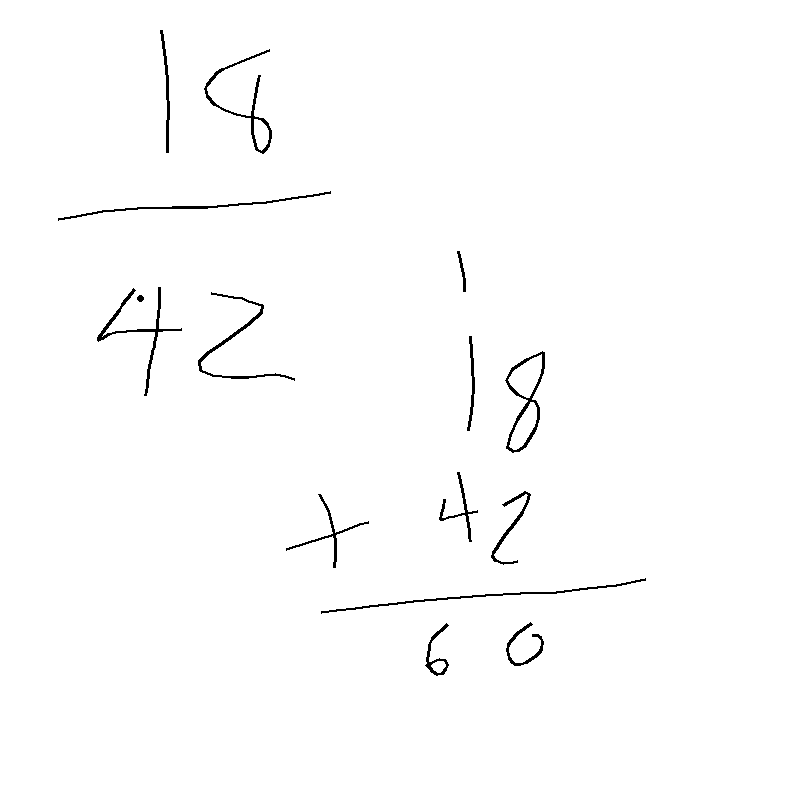 18
42
1
18
+ 42
60